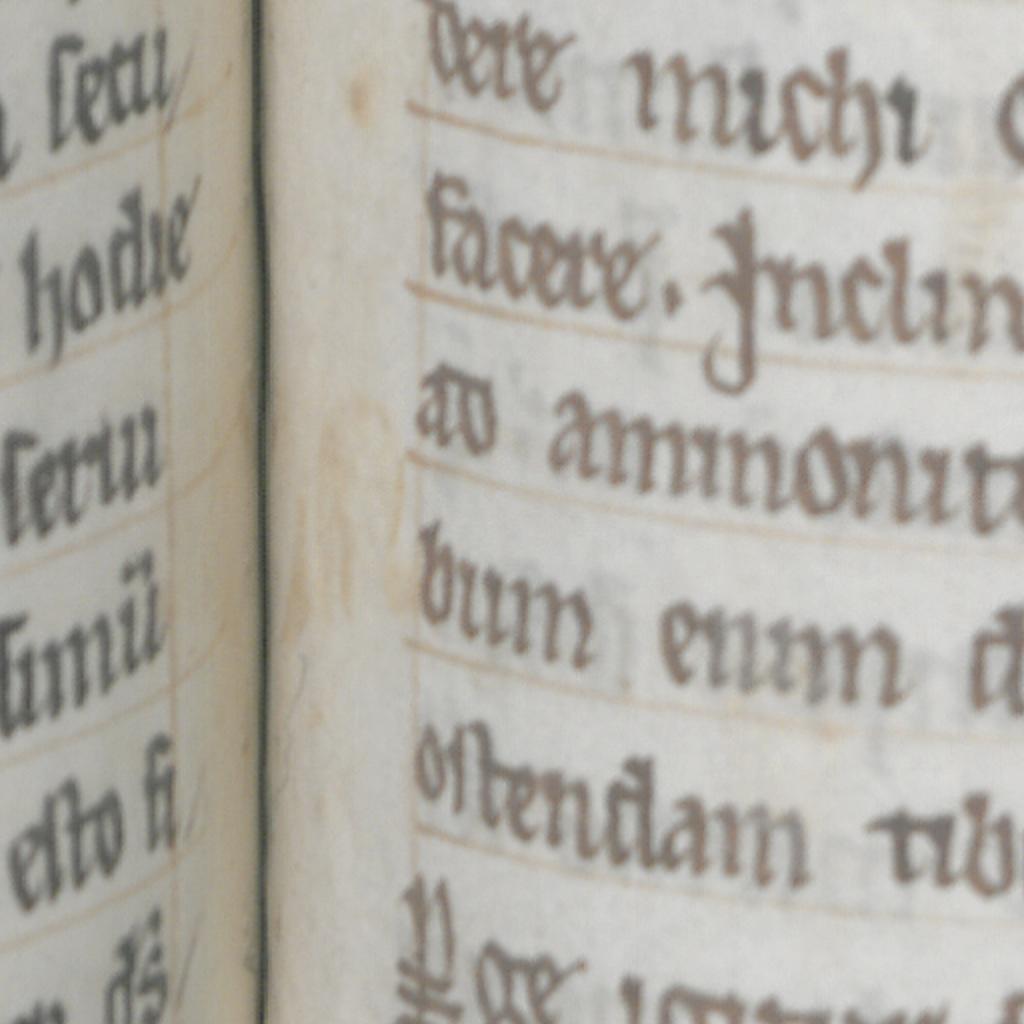 secu
hodie
seruu
sumū
esto fi
ds̄
dere michi
facere. Inclin
ad ammonit
bum enim
ostendam tib
ge